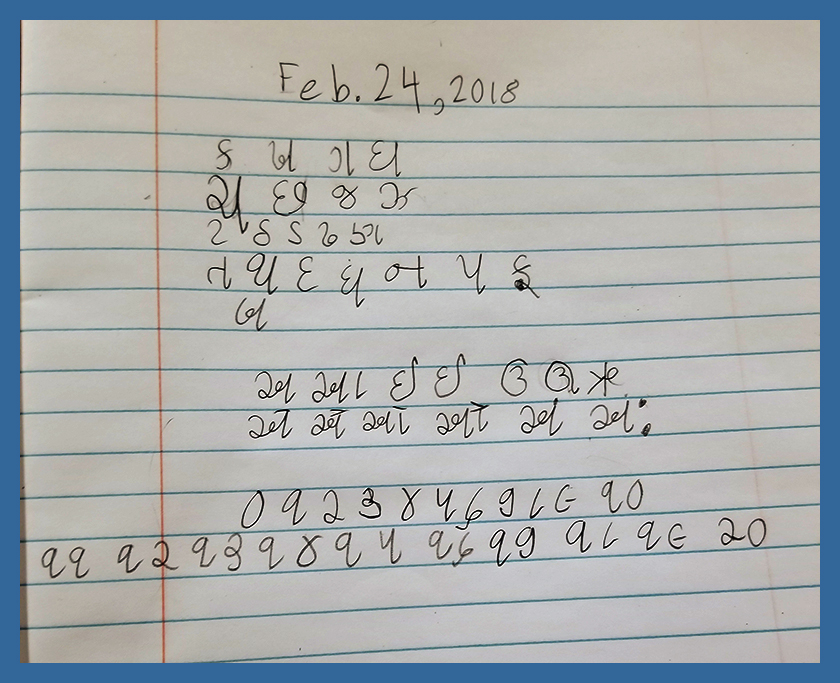 Feb. 24, 2018
ક ખ ગ ઘ
ચ છ જ ઝ
ટ ઠ ડ ઢ ણ
ત થ દ ધ ન પ ફ
બ
અ આ ઈ ઈ ઉ ઊ ઋ
એ ઐ ઓ ઔ અં અઃ
૦ ૧ ૨ ૩ ૪ ૫ ૬ ૭ ૮ ૯ ૧૦
૧૧ ૧૨ ૧૩ ૧૪ ૧૫ ૧૬ ૧૭ ૧૮ ૧૯ ૨૦